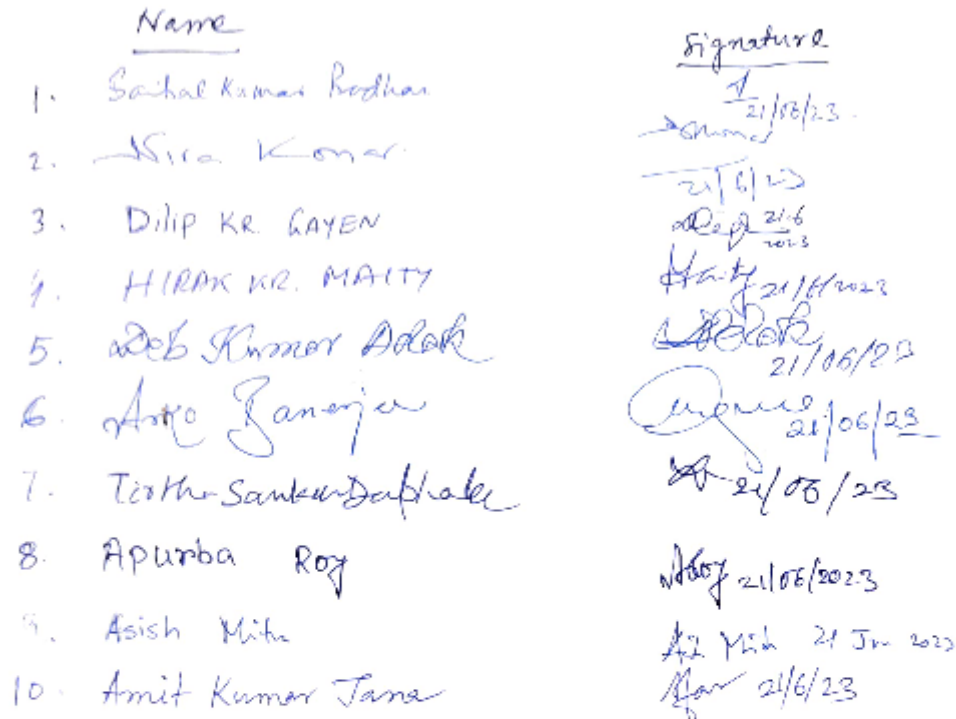 Name Signature
1. Saibal Kumar Pradhan 21/06/23.
2. Nira Konar.
21/6/23
3. Dilip KR. GAYEN 21.6
2023
4. HIRAK KR. MAITY Maity 21/6/2023
5. Deb Kumar Adak Adak
21/06/23
6. Arko Banerjee 21/06/23
7. Tirtha Sankar 21/06/23
8. Apurba Roy ARoy 21/06/2023
9. Asish Mitra 21 Jun 2023
10. Amit Kumar Jana 21/6/23